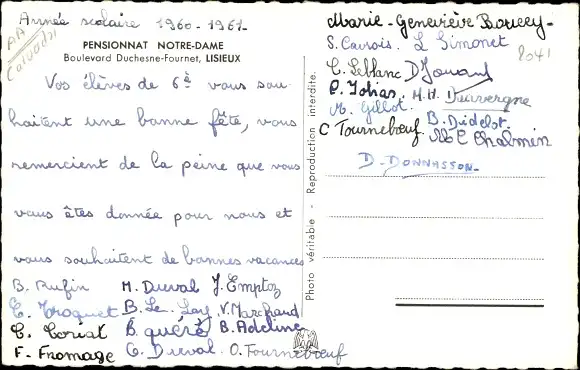 Année scolaire 1960-1961
AA
Calvados
PENSIONNAT NOTRE-DAME
Boulevard Duchesne-Fournet, LISIEUX
Vos élèves de 6è vous sou-
haitent une bonne fête, vous
remercient de la peine que vous
vous êtes donnée pour nous et
vous souhaitent de bonnes vacances
B. Rufin M. Duval J. Emptoz
C. Troquet B. Le V. Marchand
C. Coriat B. Quéré B. Adeline
F. Fromage G. Duval O. Tournebœuf
Photo véritable - Reproduction interdite.
Marie-Geneviève
S. Cavrois L Simonet
8041
C. Leblanc D Jouant
P. Tobias M.H. Duvergne
M. Gillot B. Didelot
C Tournebœuf M C Chalmin
D. DONNASSON